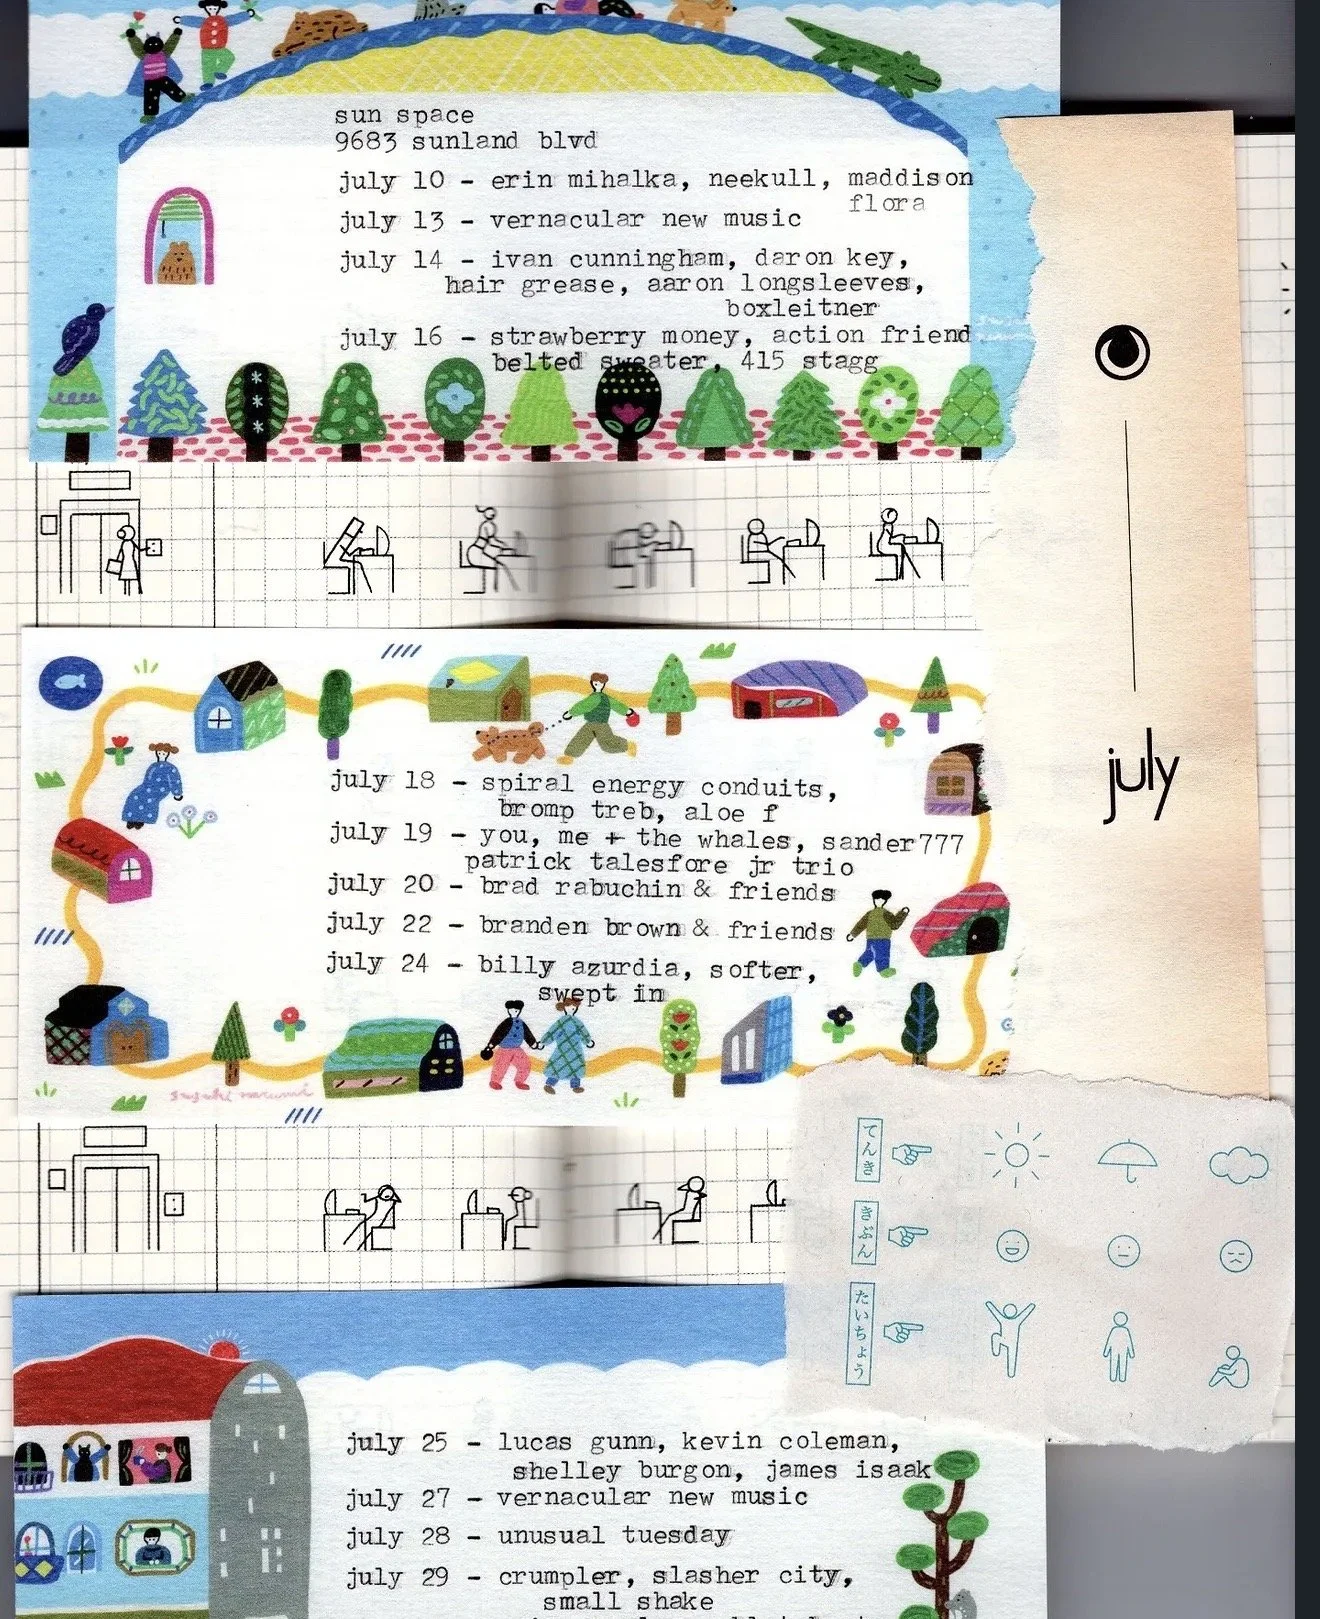 sun space
9683 sunland blvd
july 10 - erin mihalka, neekull, maddison
flora
july 13 - vernacular new music
july 14 - ivan cunningham, daron key,
hair grease, aaron longsleeves,
boxleitner
july 16 - strawberry money, action friend
belted sweater, 415 stagg
july
july 18 - spiral energy conduits,
bromp treb, aloe f
july 19 - you, me + the whales, sander777
patrick talesfore jr trio
july 20 - brad rabuchin & friends
july 22 - branden brown & friends
july 24 - billy azurdia, softer,
swept in
てんき
きぶん
たいちょう
july 25 - lucas gunn, kevin coleman,
shelley burgon, james isaak
july 27 - vernacular new music
july 28 - unusual tuesday
july 29 - crumpler, slasher city,
small shake